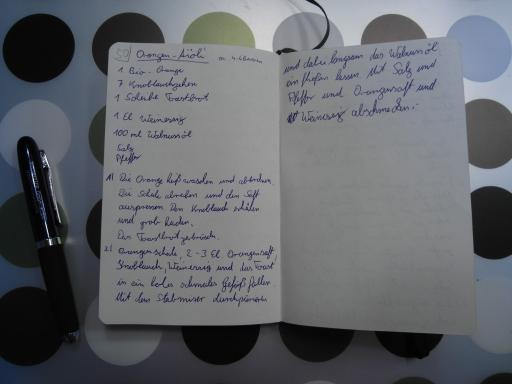 50 Orangen-Aioli
1 Bio-Orange
7 Knoblauchzehen
1 Scheibe Toastbrot
1 El Weinessig
100 ml Walnussöl
Salz
Pfeffer
1) Die Orange heiß waschen und abtrocknen.
Die Schale abreiben und den Saft
auspressen. Den Knoblauch schälen
und grob hacken.
Das Toastbrot
2) Orangenschale, 2-3 El. Orangensaft,
Knoblauch, Weinessig und das Toast
in ein hohes schmales Gefäß füllen.
Mit dem Stabmixer durchpürieren
und dabei langsam das Walnussöl
einfließen lassen. Mit Salz und
Pfeffer und Orangensaft und
Weinessig abschmecken.